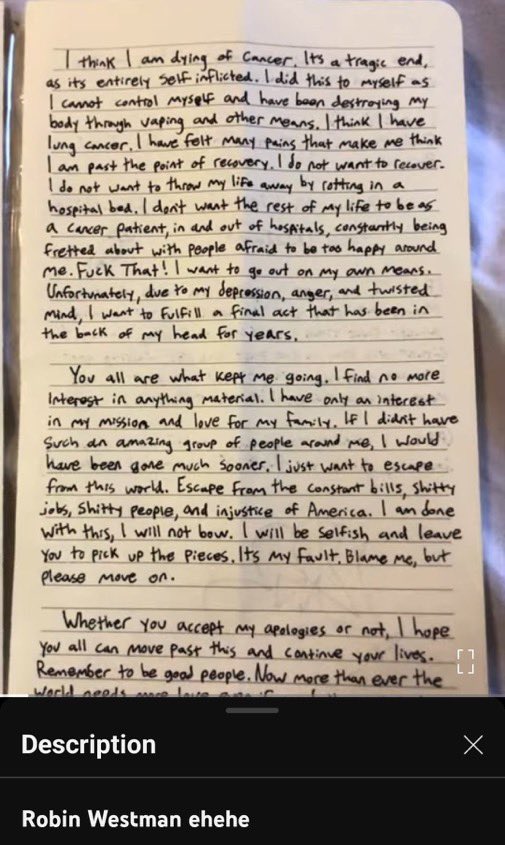 I think I am dying of cancer. Its a tragic end,
as its entirely self inflicted. I did this to myself as
I cannot control myself and have been destroying my
body through vaping and other means. I think I have
lung cancer. I have felt many pains that make me think
I am past the point of recovery. I do not want to recover.
I do not want to throw my life away by rotting in a
hospital bed. I dont want the rest of my life to be as
a cancer patient, in and out of hospitals, constantly being
fretted about with people afraid to be too happy around
me. Fuck That! I want to go out on my own means.
Unfortunately, due to my depression, anger, and twisted
mind, I want to fulfill a final act that has been in
the back of my head for years.
You all are what kept me going. I find no more
Interest in anything material. I have only an interest
in my mission and love for my family. If I didnt have
such an amazing group of people around me, I would
have been gone much sooner. I just want to escape
from this world. Escape from the constant bills, shitty
jobs, shitty people, and injustice of America. I am done
with this, I will not bow. I will be selfish and leave
you to pick up the pieces. Its my fault. Blame me, but
please move on.
Whether you accept my apologies or not, I hope
you all can move past this and continue your lives.
Remember to be good people. Now more than ever the
world needs more love
Description
Robin Westman ehehe